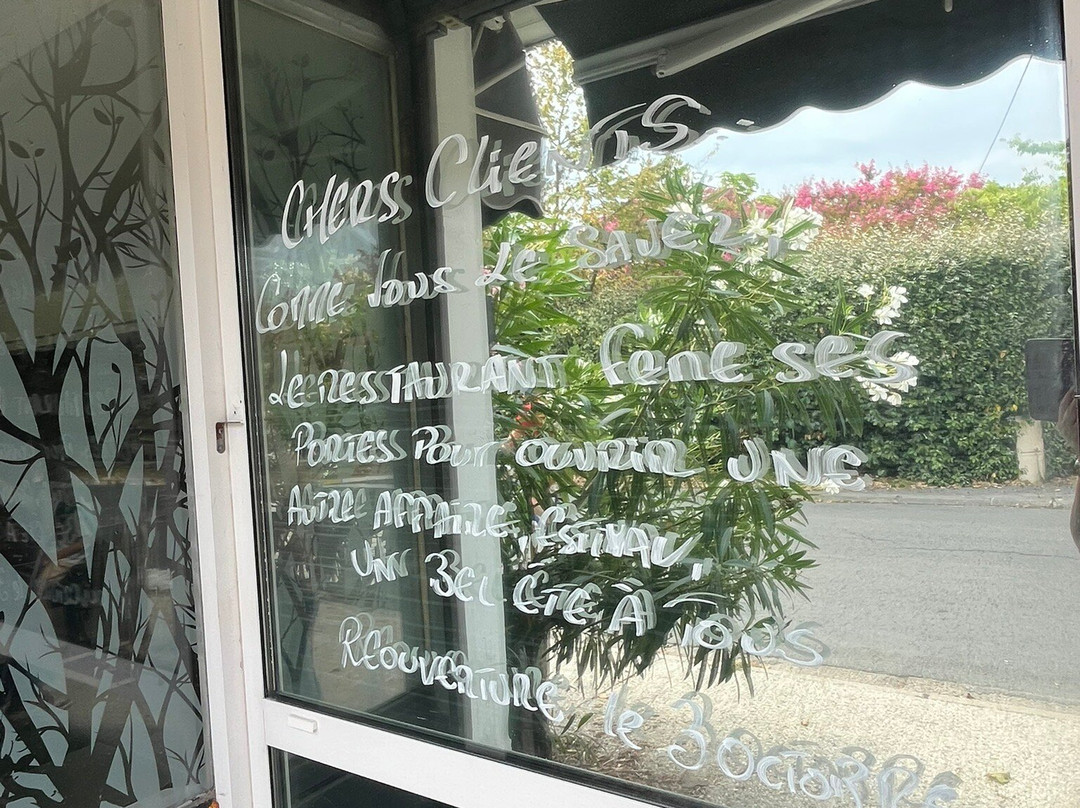 CHERS CLIENTS
COMME VOUS LE SAVEZ,
LE RESTAURANT FERME SES
PORTES POUR OUVRIR UNE
AUTRE AFFAIRE, ESTIVAL,
UN BEL ÉTÉ À TOUS
RÉOUVERTURE le 3 OCTOBRE